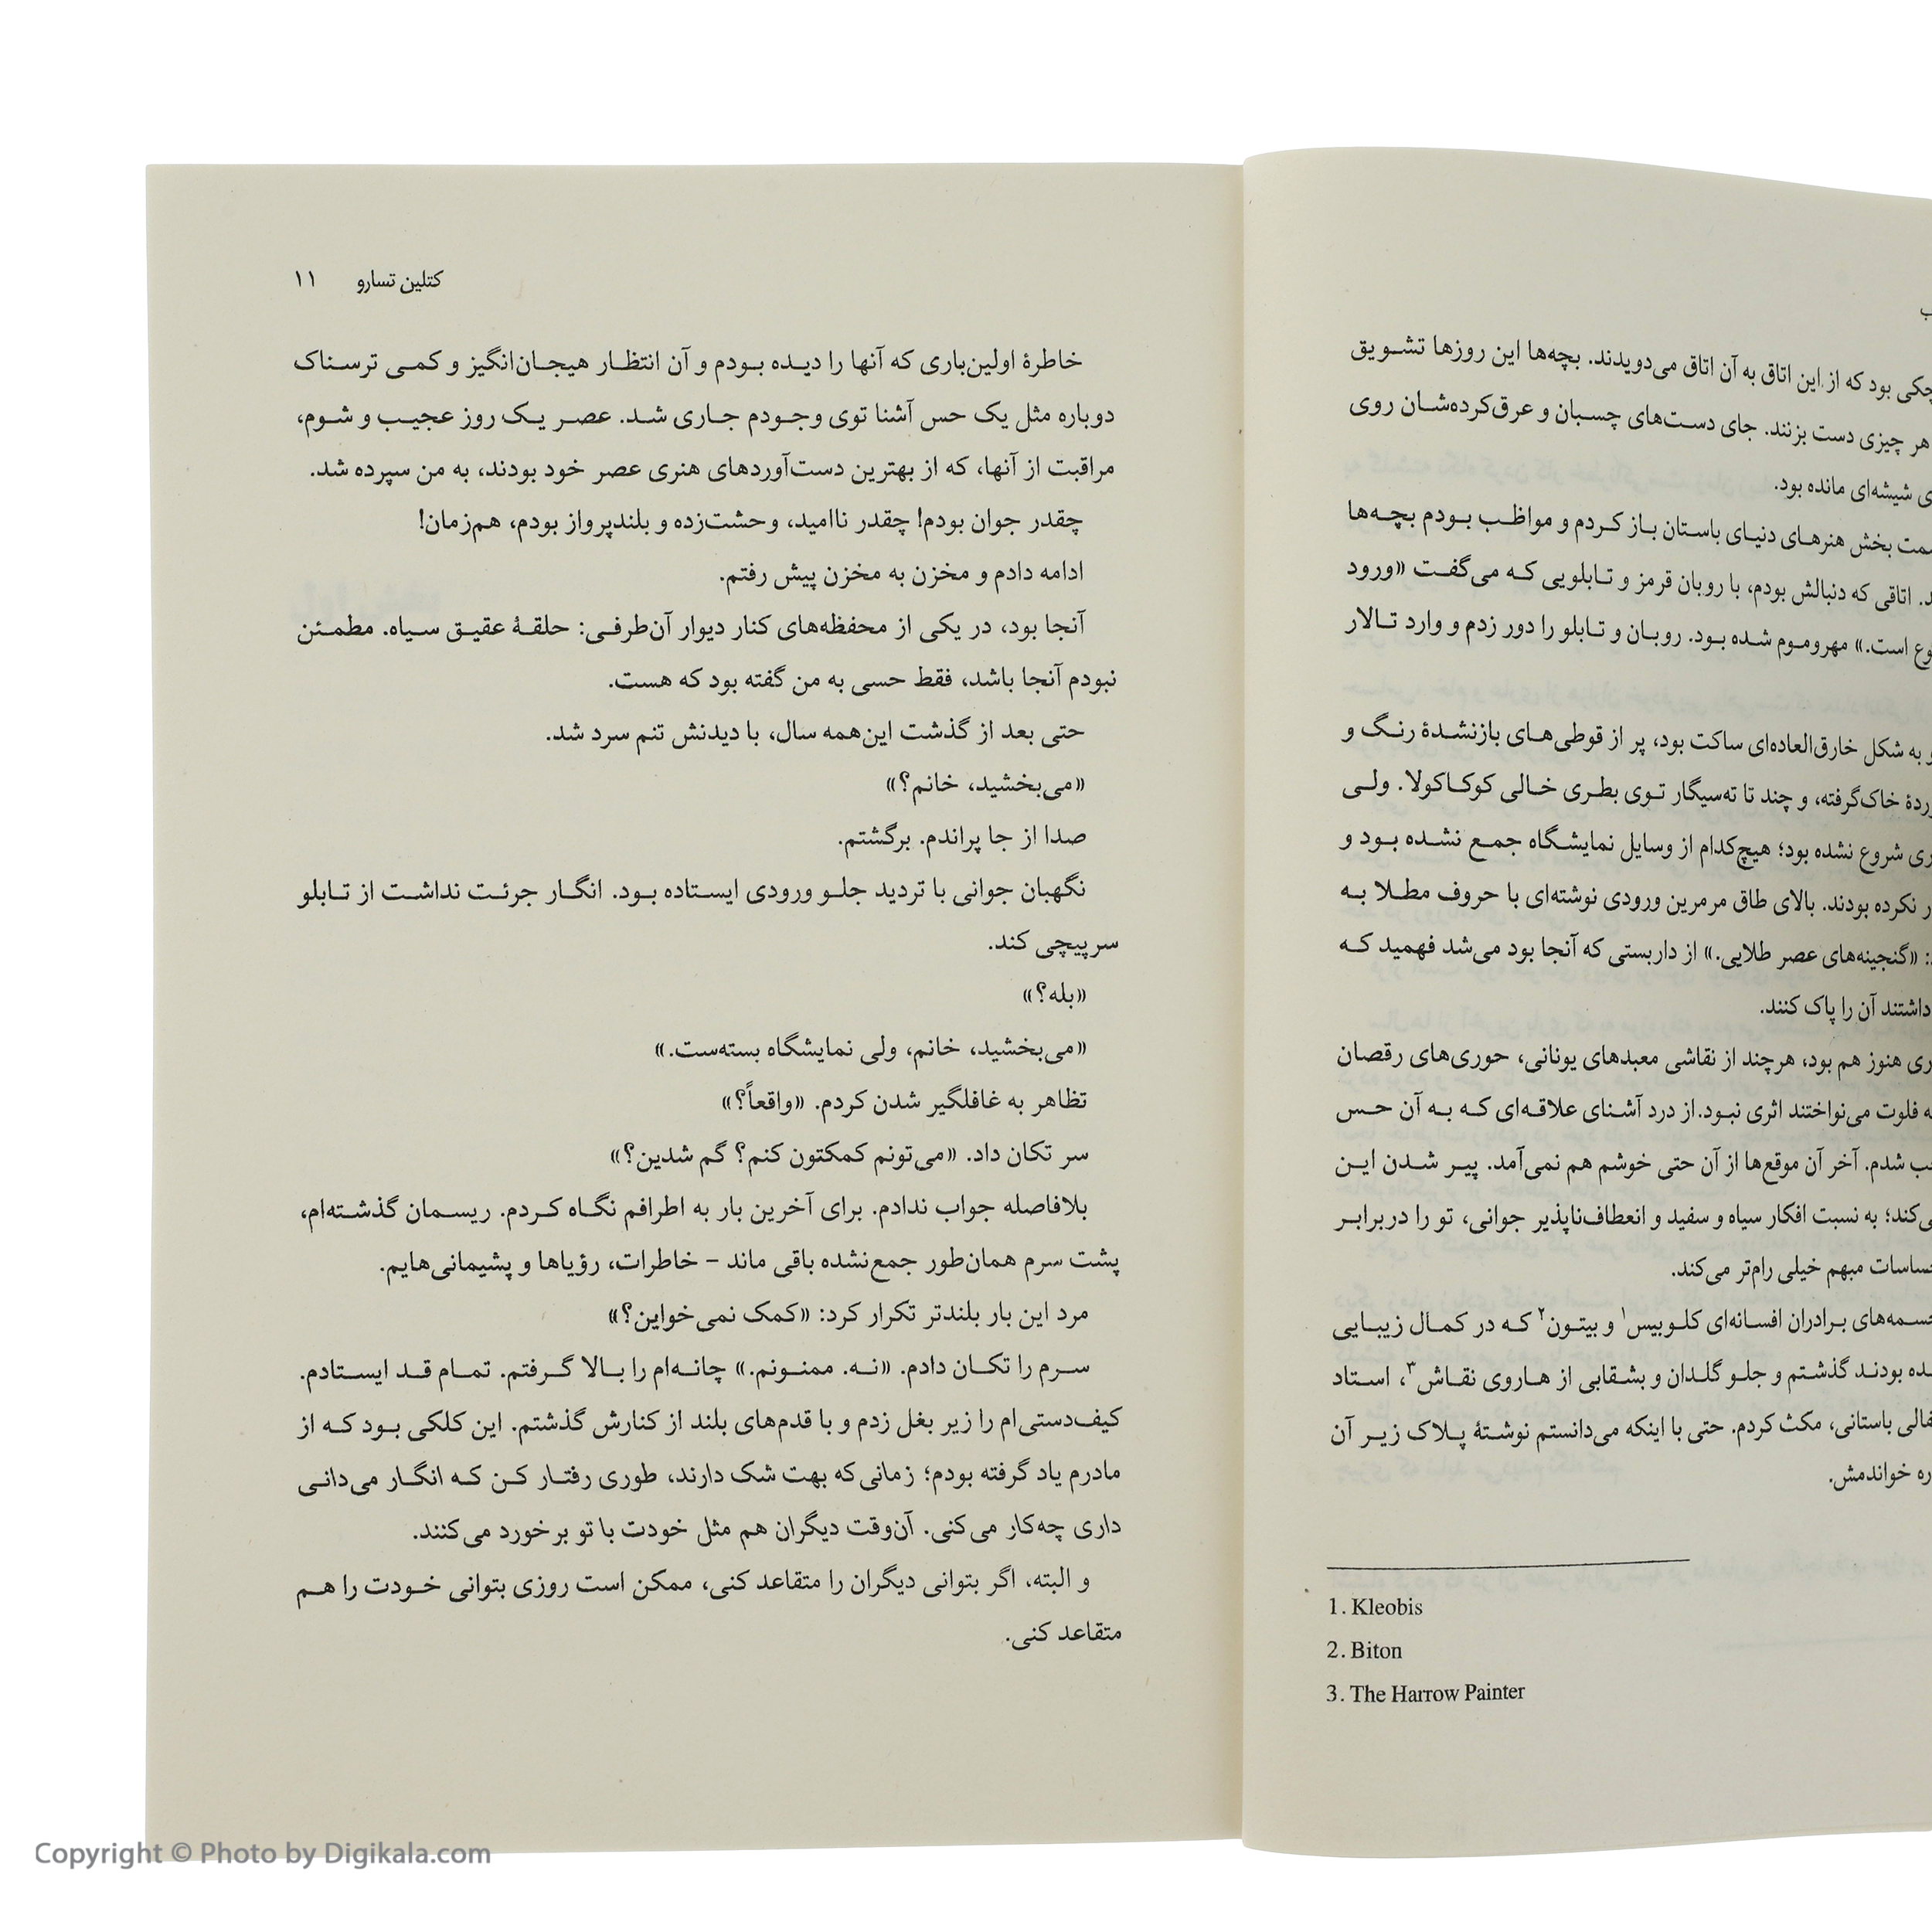 بود که از این اتاق به آن اتاق می‌دویدند. بچه‌ها این روزها تشویق
هر چیزی دست بزنند. جای دست‌های چسبان و عرق‌کرده‌شان روی
شیشه‌ای مانده بود.
بخش هنرهای دنیای باستان باز کردم و مواظب بودم بچه‌ها
اتاقی که دنبالش بودم، با روبان قرمز و تابلویی که می‌گفت «ورود
است.» مهروموم شده بود. روبان و تابلو را دور زدم و وارد تالار
به شکل خارق‌العاده‌ای ساکت بود، پر از قوطی‌های بازنشدهٔ رنگ و
خاک‌گرفته، و چند تا ته‌سیگار توی بطری خالی کوکاکولا. ولی
شروع نشده بود؛ هیچ‌کدام از وسایل نمایشگاه جمع نشده بود و
نکرده بودند. بالای طاق مرمرین ورودی نوشته‌ای با حروف مطلا به
«گنجینه‌های عصر طلایی.» از داربستی که آنجا بود می‌شد فهمید که
داشتند آن را پاک کنند.
هنوز هم بود، هرچند از نقاشی معبدهای یونانی، حوری‌های رقصان
فلوت می‌نواختند اثری نبود. از درد آشنای علاقه‌ای که به آن حس
شدم. آخر آن موقع‌ها از آن حتی خوشم هم نمی‌آمد. پیر شدن این
به نسبت افکار سیاه و سفید و انعطاف‌ناپذیر جوانی، تو را دربرابر
مبهم خیلی رام‌تر می‌کند.
برادران افسانه‌ای کلوبیس۱ و بیتون۲ که در کمال زیبایی
بودند گذشتم و جلو گلدان و بشقابی از هاروی نقاش۳، استاد
باستانی، مکث کردم. حتی با اینکه می‌دانستم نوشتهٔ پلاک زیر آن
خواندمش.
1. Kleobis
2. Biton
3. The Harrow Painter
کتلین تسارو ۱۱
خاطرهٔ اولین‌باری که آنها را دیده بودم و آن انتظار هیجان‌انگیز و کمی ترسناک
دوباره مثل یک حس آشنا توی وجودم جاری شد. عصر یک روز عجیب و شوم،
مراقبت از آنها، که از بهترین دست‌آوردهای هنری عصر خود بودند، به من سپرده شد.
چقدر جوان بودم! چقدر ناامید، وحشت‌زده و بلندپرواز بودم، هم‌زمان!
ادامه دادم و مخزن به مخزن پیش رفتم.
آنجا بود، در یکی از محفظه‌های کنار دیوار آن‌طرفی: حلقهٔ عقیق سیاه. مطمئن
نبودم آنجا باشد، فقط حسی به من گفته بود که هست.
حتی بعد از گذشت این‌همه سال، با دیدنش تنم سرد شد.
«می‌بخشید، خانم؟»
صدا از جا پراندم. برگشتم.
نگهبان جوانی با تردید جلو ورودی ایستاده بود. انگار جرئت نداشت از تابلو
سرپیچی کند.
«بله؟»
«می‌بخشید، خانم، ولی نمایشگاه بسته‌ست.»
تظاهر به غافلگیر شدن کردم. «واقعاً؟»
سر تکان داد. «می‌تونم کمکتون کنم؟ گم شدین؟»
بلافاصله جواب ندادم. برای آخرین بار به اطرافم نگاه کردم. ریسمان گذشته‌ام،
پشت سرم همان‌طور جمع‌نشده باقی ماند – خاطرات، رؤیاها و پشیمانی‌هایم.
مرد این بار بلندتر تکرار کرد: «کمک نمی‌خواین؟»
سرم را تکان دادم. «نه. ممنونم.» چانه‌ام را بالا گرفتم. تمام قد ایستادم.
کیف‌دستی‌ام را زیر بغل زدم و با قدم‌های بلند از کنارش گذشتم. این کلکی بود که از
مادرم یاد گرفته بودم؛ زمانی‌که بهت شک دارند، طوری رفتار کن که انگار می‌دانی
داری چه‌کار می‌کنی. آن‌وقت دیگران هم مثل خودت با تو برخورد می‌کنند.
و البته، اگر بتوانی دیگران را متقاعد کنی، ممکن است روزی بتوانی خودت را هم
متقاعد کنی.
Copyright © Photo by Digikala.com